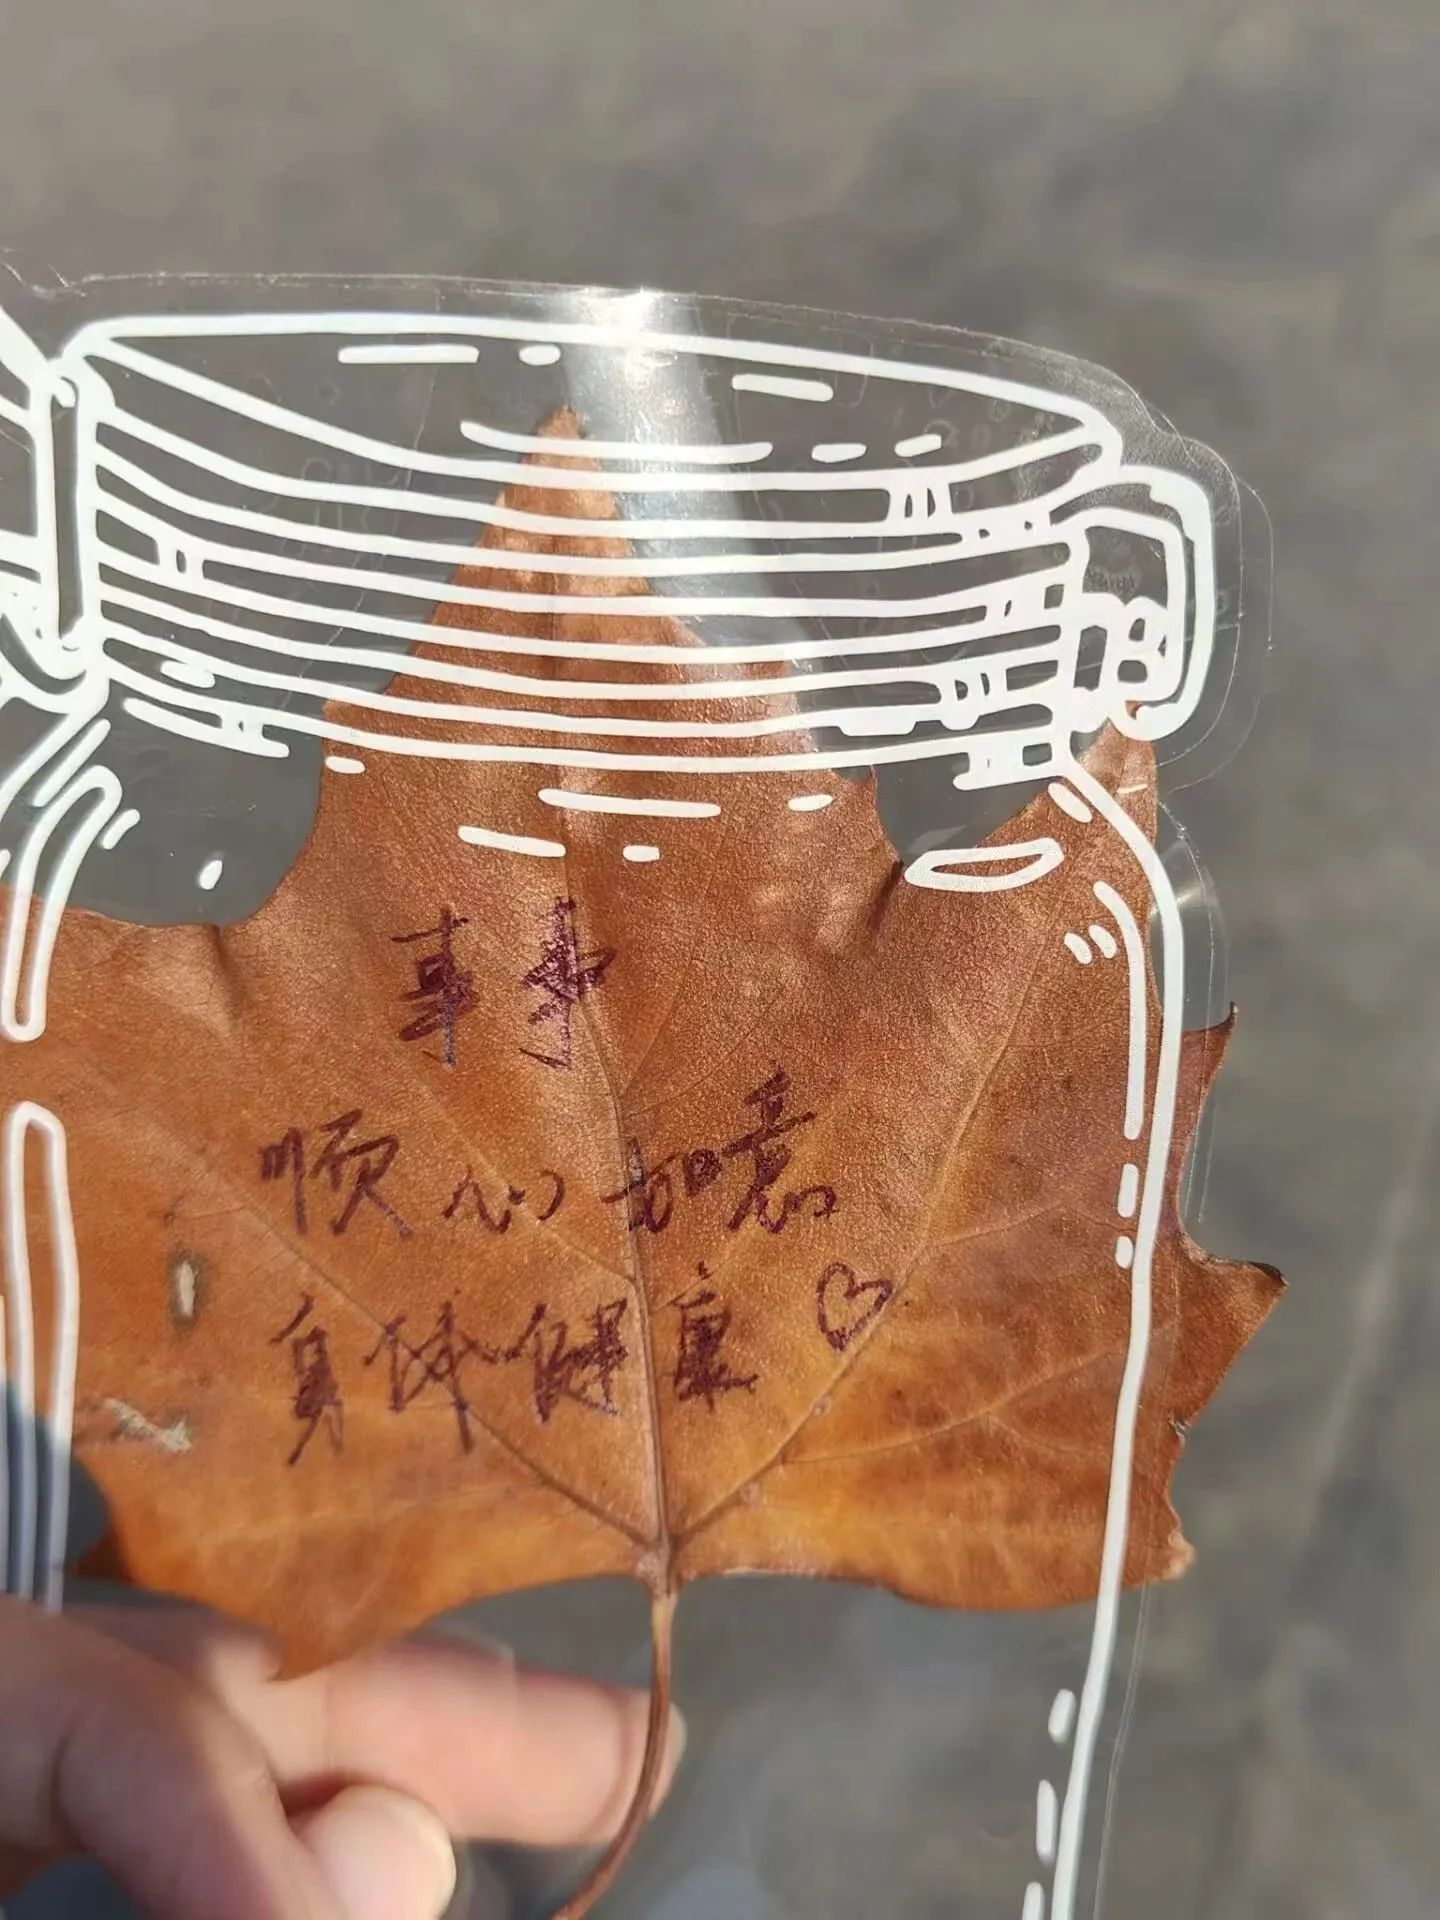 事事
顺心如意
身体健康♡